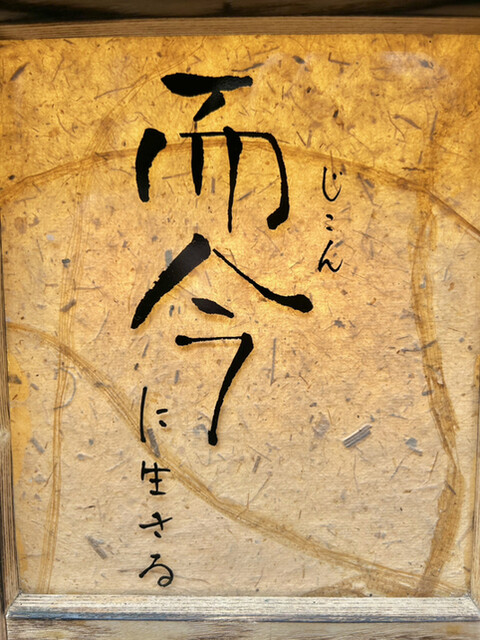 而今に生きる
じこん